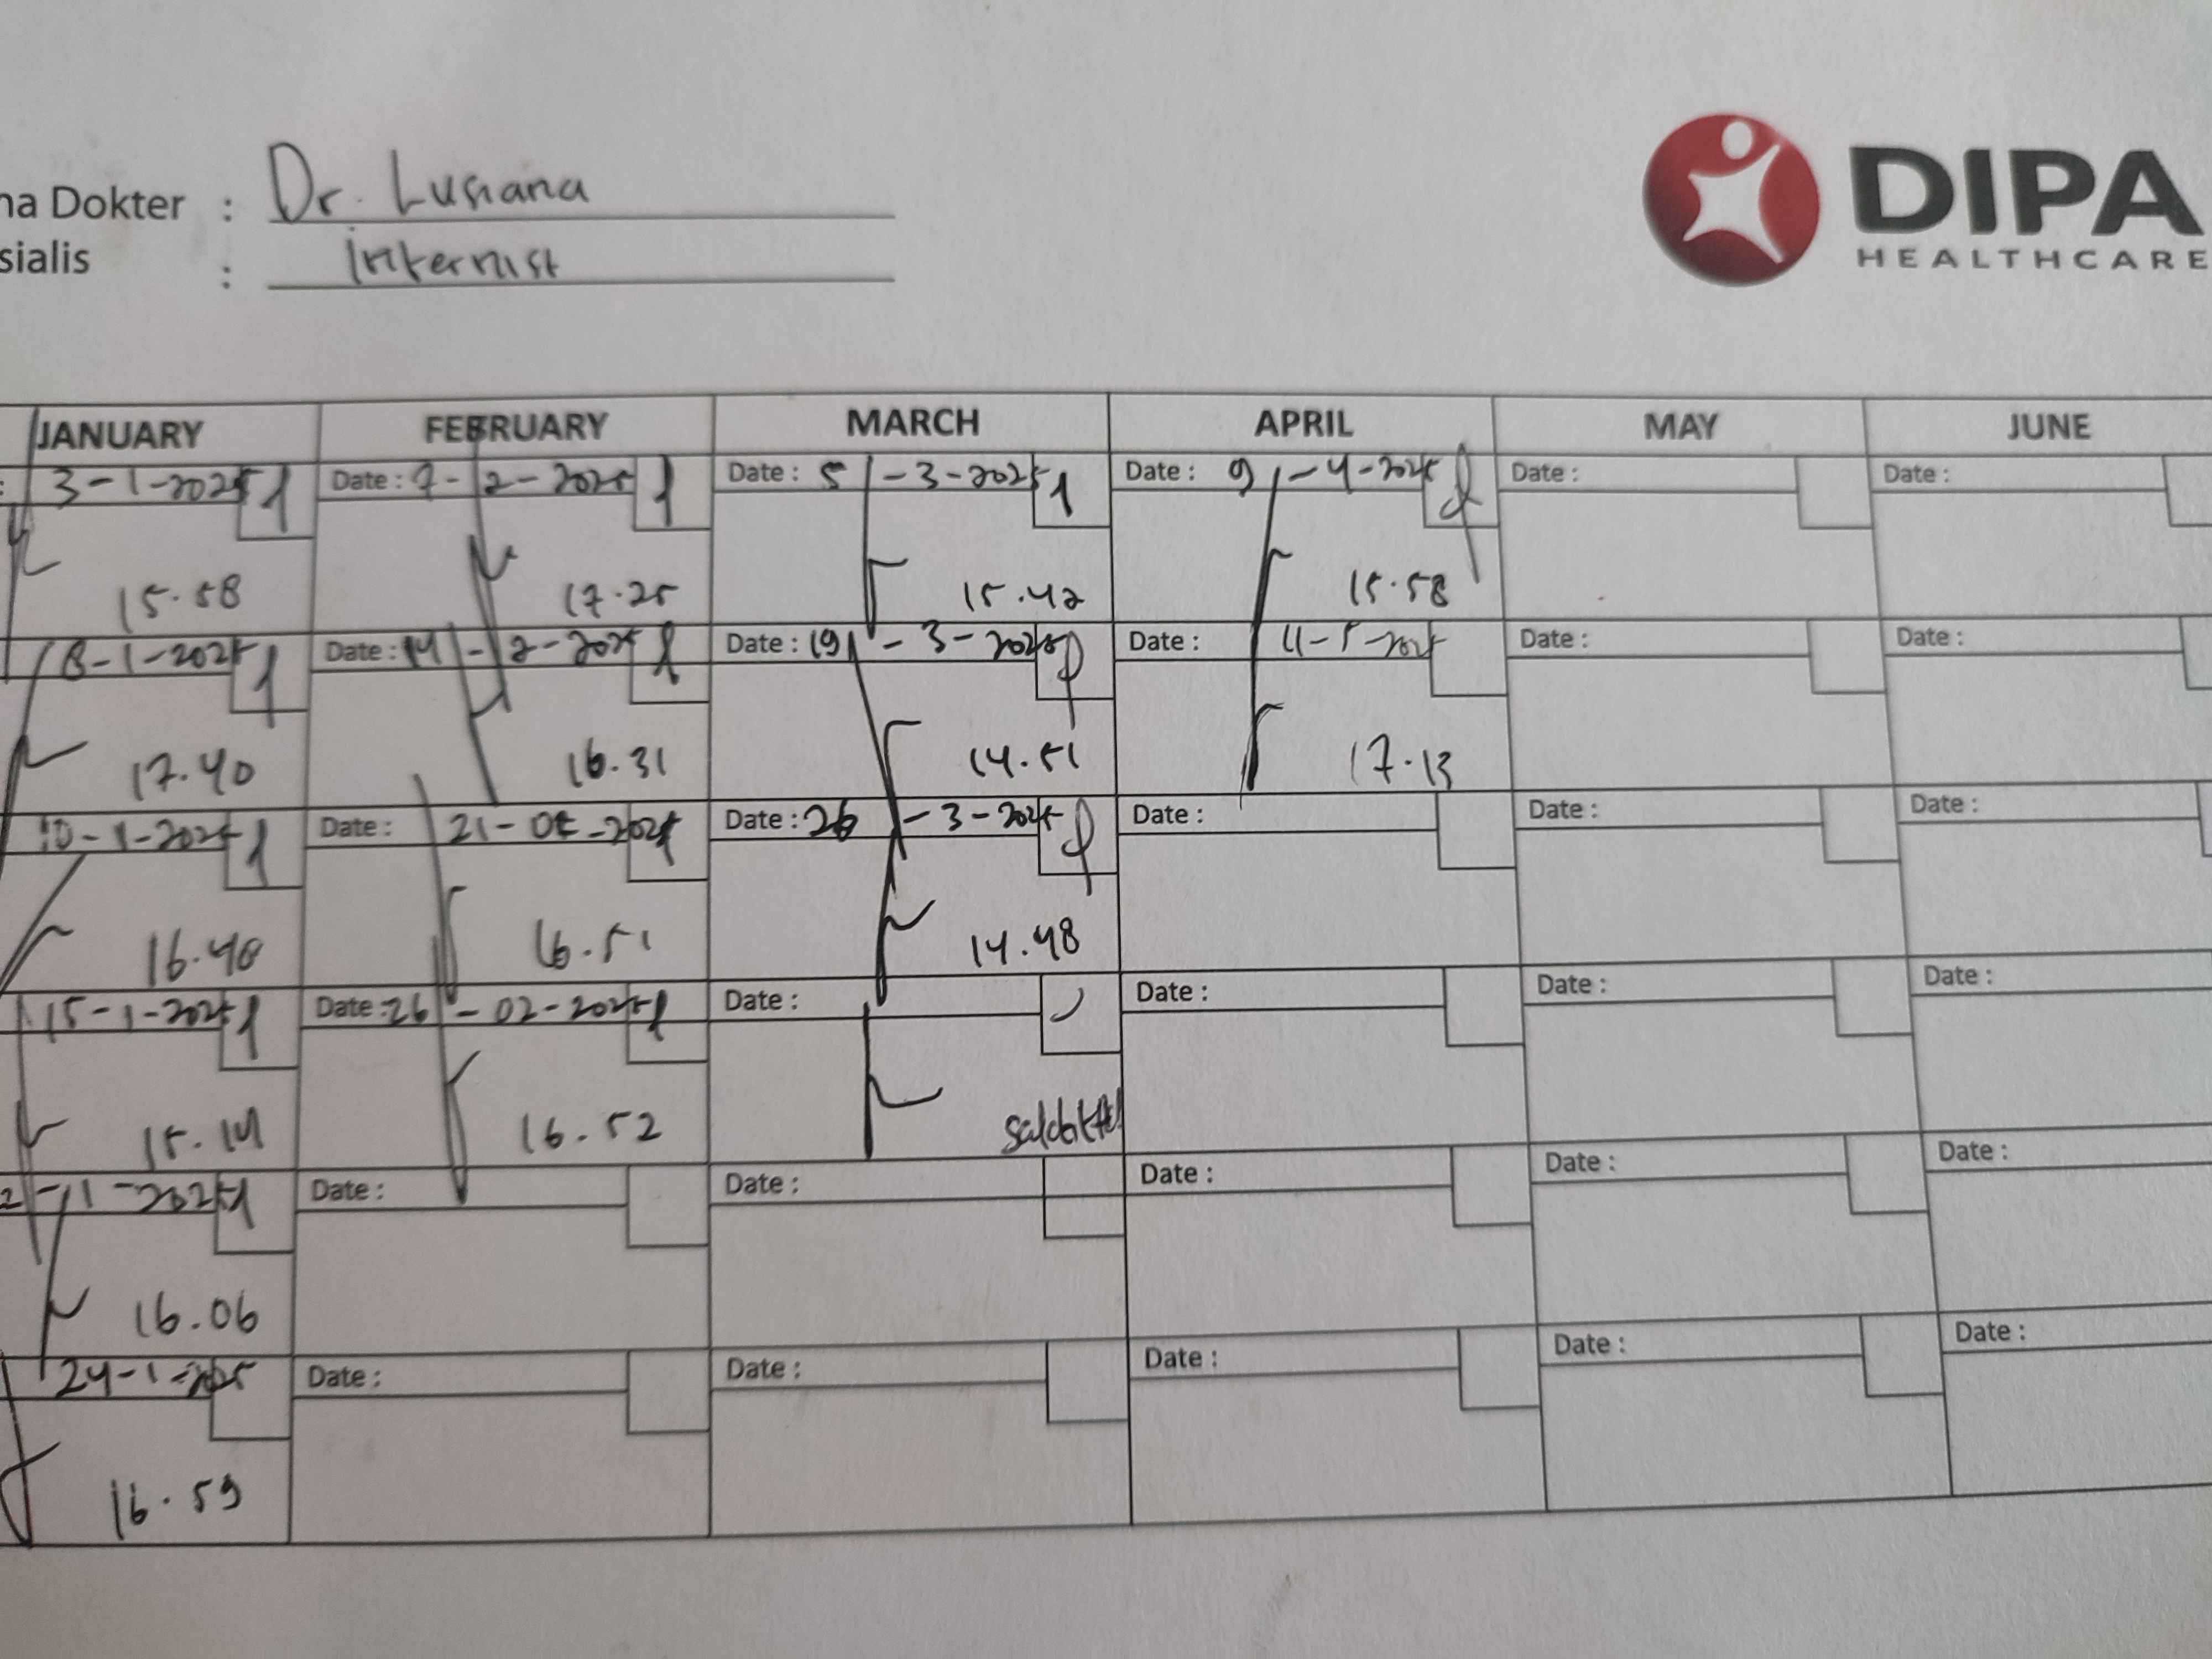 na Dokter : Dr. Lusiana
sialis : Internist
DIPA
HEALTHCARE
JANUARY FEBRUARY MARCH APRIL MAY JUNE
: 3-1-2025 Date : 7-2-2025 Date : 5-3-2025 Date : 9-4-2025 Date : Date :
15.58 17.25 15.42 15.58
8-1-2025 Date : 14-2-2025 Date : 19-3-2025 Date : Date : Date :
17.40 16.31 14.51 17.13
10-1-2025 Date : 21-02-2025 Date : 26-3-2025 Date : Date : Date :
16.40 16.51 14.48
15-1-2025 Date : 26-02-2025 Date : Date : Date : Date :
15.14 16.52
2-1-2025 Date : Date : Date : Date : Date :
16.06
24-1-2025 Date : Date : Date : Date : Date :
16.59